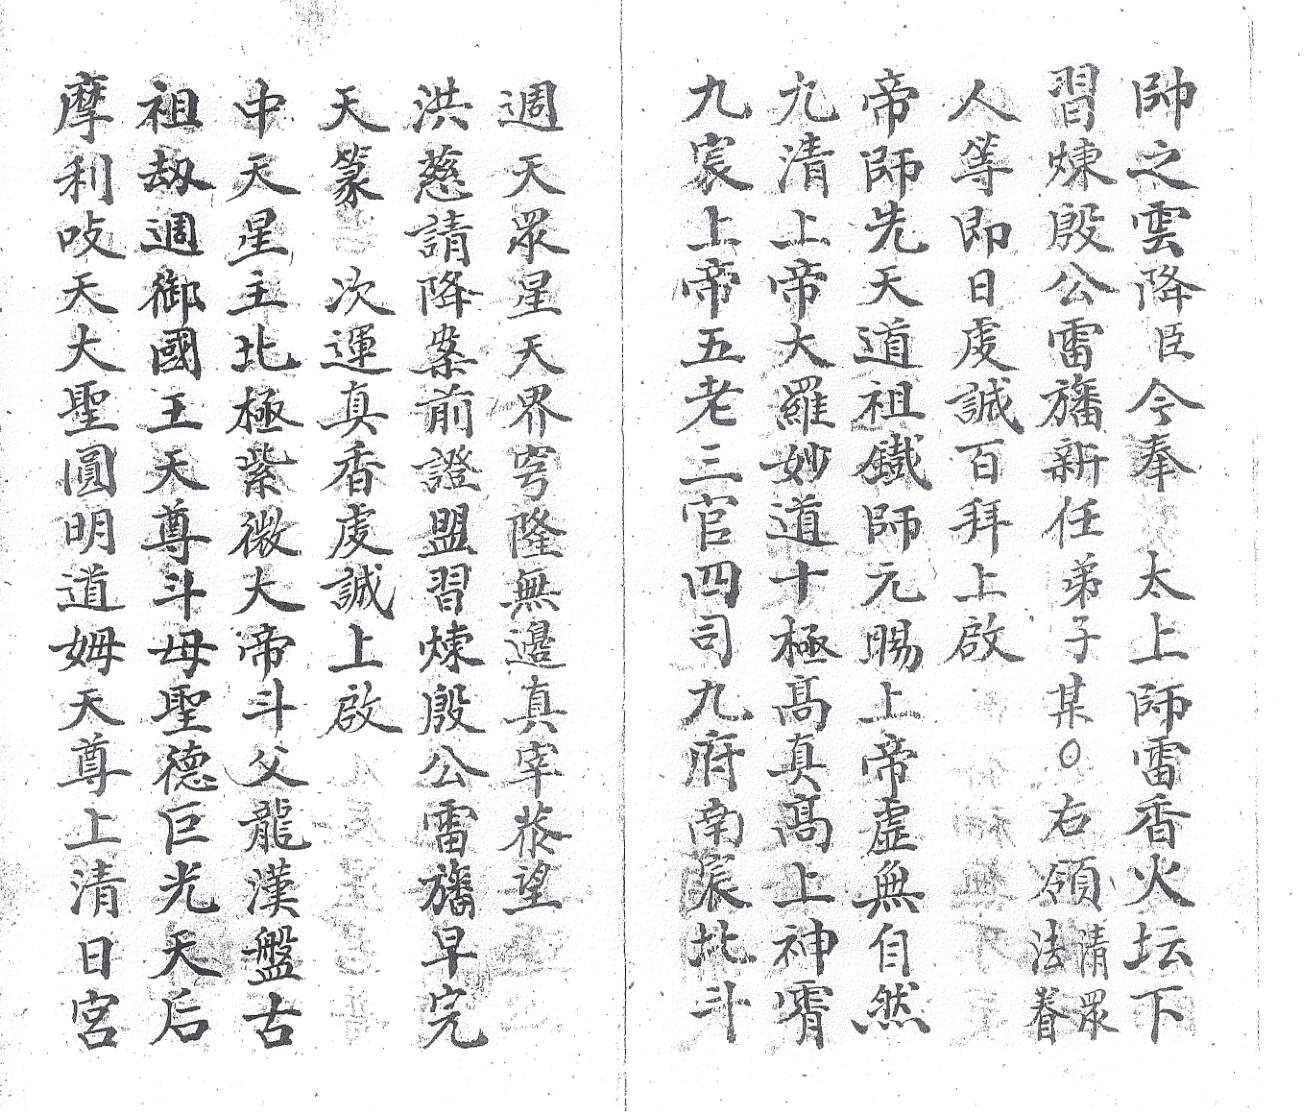 帥之雲降臣今奉　太上師雷香火坛下
習煉殷公雷旛新任弟子某○右領清眾法眷
人等即日虔誠百拜上啟
帝師先天道祖鐵師元賜上帝虛無自然
九清上帝大羅妙道十極髙真髙上神霄
九宸上帝五老三官四司九府南宸北斗
週天眾星天界穹隆無邊真宰恭望
洪慈請降案前證盟習煉殷公雷旛早完
天篆　次運真香虔誠上啟
中天星主北極紫微大帝斗父龍漢盤古
祖劫週御國王天尊斗母聖德巨光天后
摩利吱天大聖圓明道姆天尊上清日宮